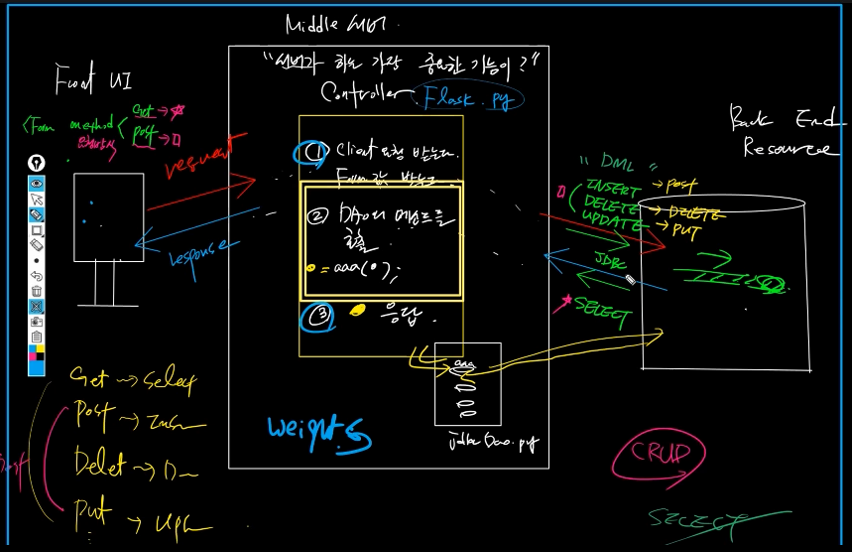 Middle 서버.
"서버가 하는 가장 중요한 기능이?"
Controller Flask.py
Front UI
<Form method
Get → ★
Post → □
요청방식
request
response
① Client 요청 받는다.
Form값 받는다.
② DAO의 메소드를
호출
= aaa(•);
③ 응답.
aaa
Dao.py
weights
Back End
Resource
"DML"
INSERT → Post
DELETE → DELETE
UPDATE → PUT
JDBC
★ SELECT
Get → Select
Post →
Delet → D
Put → Up
CRUD
SELECT